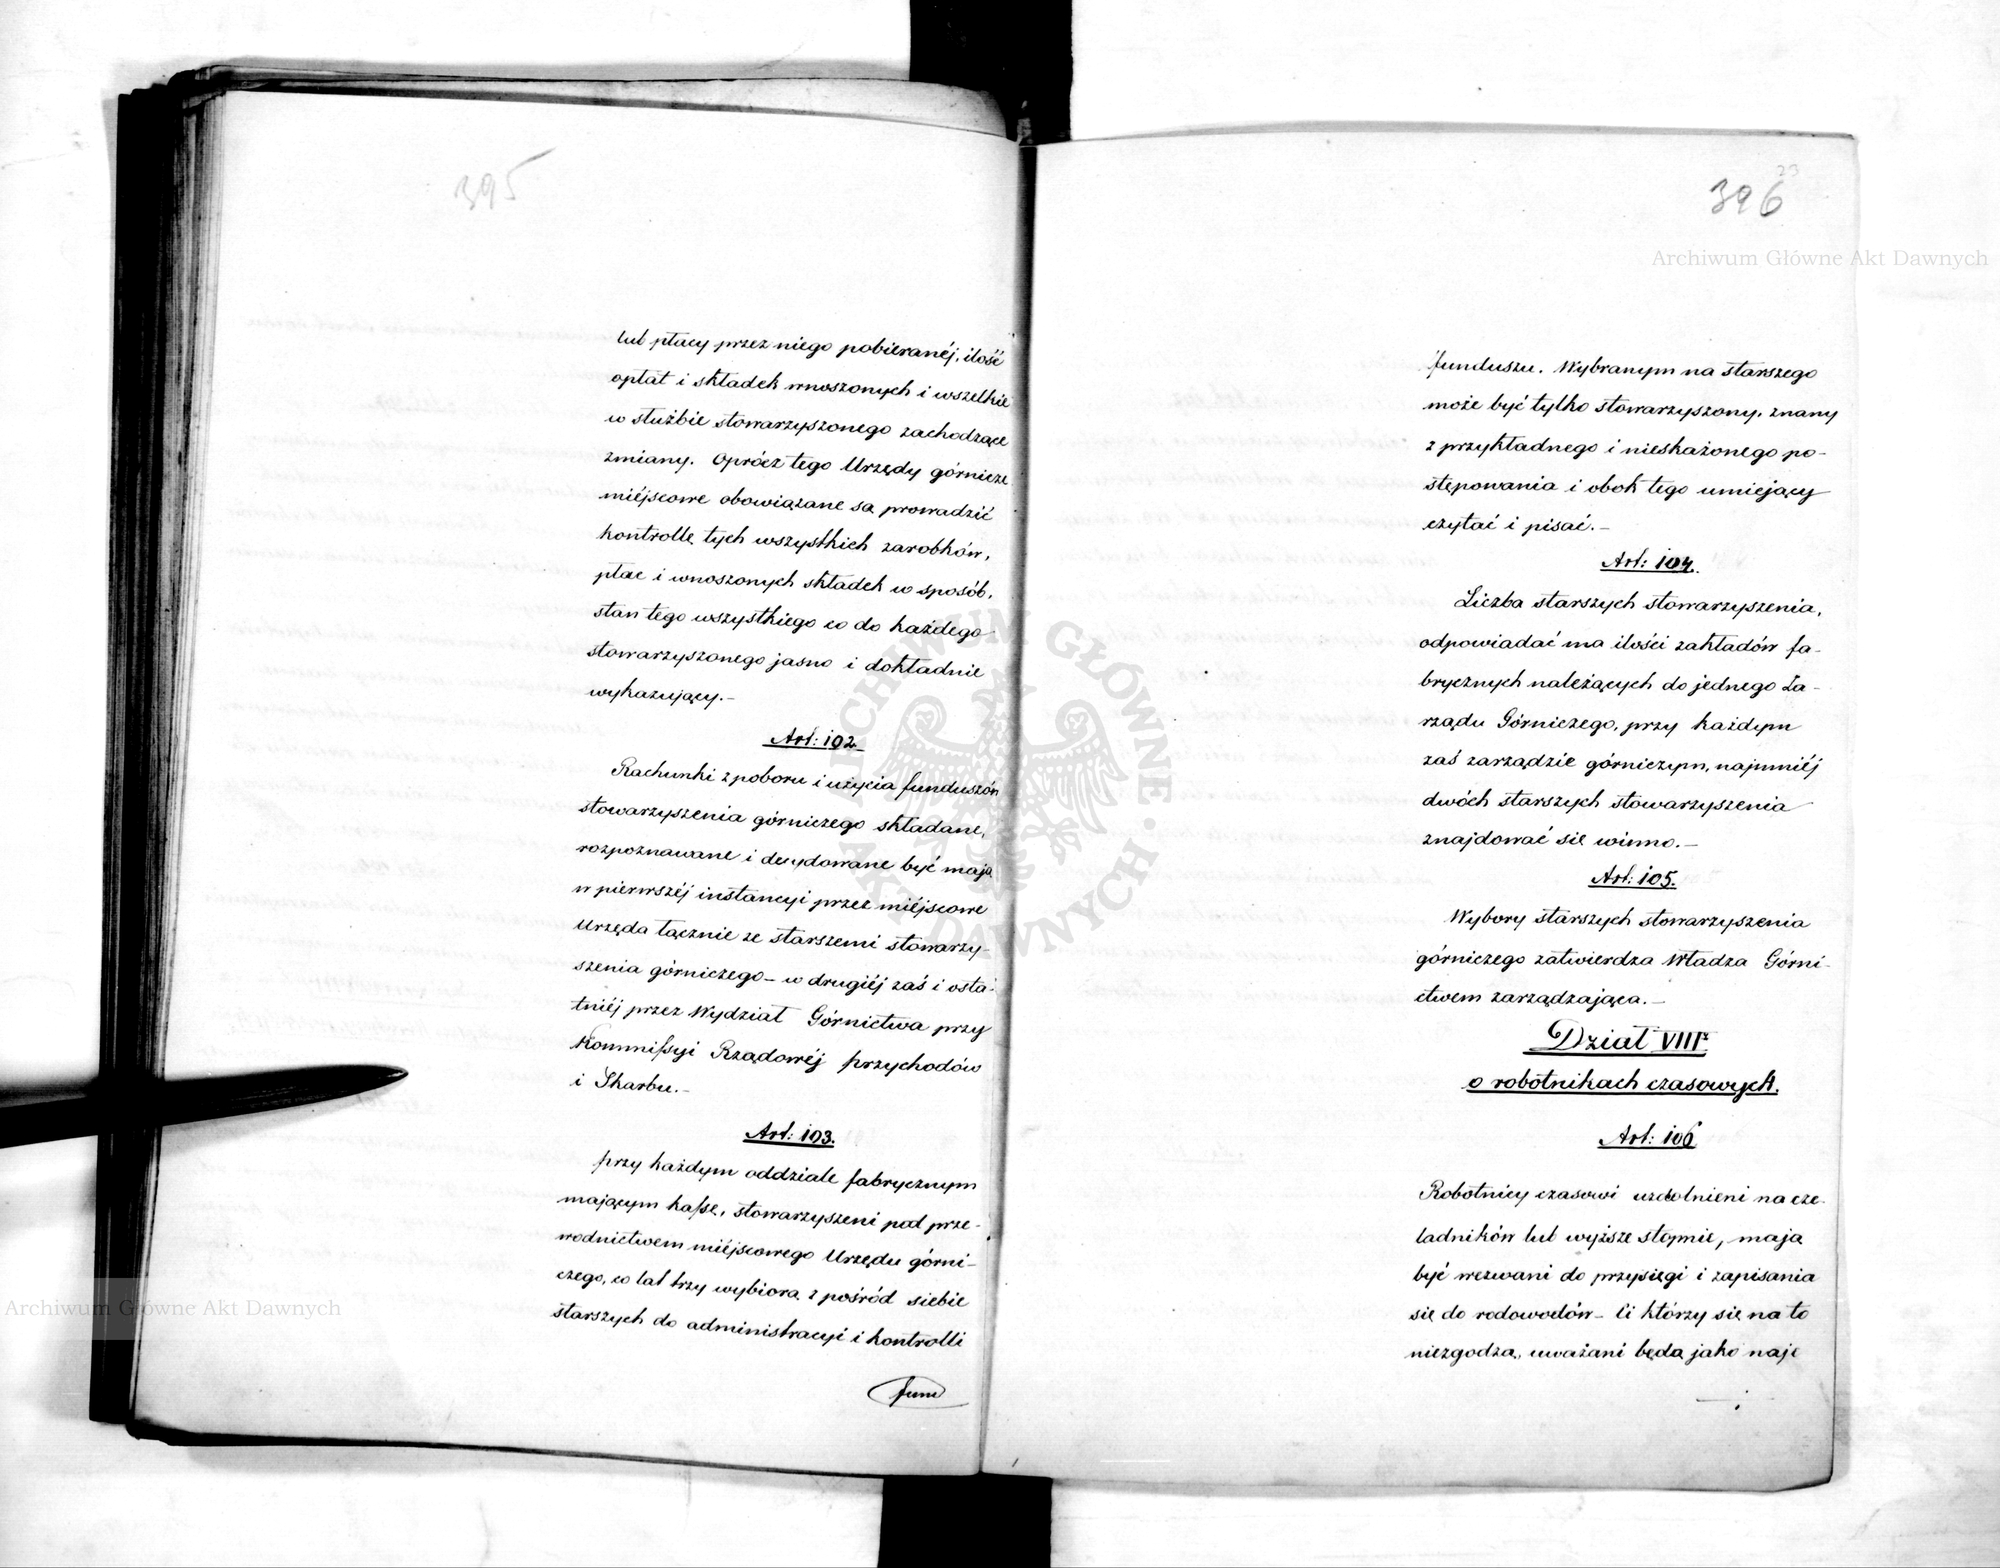 395
lub płacy przez niego pobieranéj, ilość
opłat i składek wnoszonych i wszelkie
w służbie stowarzyszonego zachodzące
zmiany. Oprócz tego Urzędy górnicze
miéjscowe obowiązane są prowadzić
kontrollę tych wszystkich zarobków,
płac i wnoszonych składek w sposób,
stan tego wszystkiego co do każdego
stowarzyszonego jasno i dokładnie
wykazujący.-
Art: 102.
Rachunki z poboru i użycia funduszów
stowarzyszenia górniczego składane,
rozpoznawane i decydowane być mają
w pierwszéj instancyi przez miéjscowe
Urzęda łącznie ze starszemi stowarzy-
szenia górniczego - w drugiéj zaś i osta-
tniéj przez Wydział Górnictwa przy
Kommissyi Rządowéj przychodów
i Skarbu.-
Art: 103.
przy każdym oddziale fabrycznym
mającym kassę, stowarzyszeni pod prze-
wodnictwem miéjscowego Urzędu górni-
czego, co lat trzy wybiorą z pośród siebie
starszych do administracyi i kontrolli
fun
23
396
funduszu. Wybranym na starszego
może być tylko stowarzyszony, znany
z przykładnego i nieskażonego po-
stępowania i obok tego umiejący
czytać i pisać.-
Art: 104.
Liczba starszych stowarzyszenia,
odpowiadać ma ilości zakładów fa-
brycznych należących do jednego Za-
rządu Górniczego, przy każdym
zaś zarządzie górniczym, najmniéj
dwóch starszych stowarzyszenia
znajdować się winno.-
Art: 105.
Wybory starszych stowarzyszenia
górniczego zatwierdza Władza Górni-
ctwem zarządzająca.-
Dział VIII
o robotnikach czasowych.
Art: 106
Robotnicy czasowi uzdolnieni na cze-
ladników lub wyższe stopnie, mają
być wezwani do przysięgi i zapisania
się do rodowodów - Ci którzy się na to
niezgodzą, uważani będą jako naję
Archiwum Główne Akt Dawnych
Archiwum Główne Akt Dawnych
ARCHIWUM GŁÓWNE AKT DAWNYCH